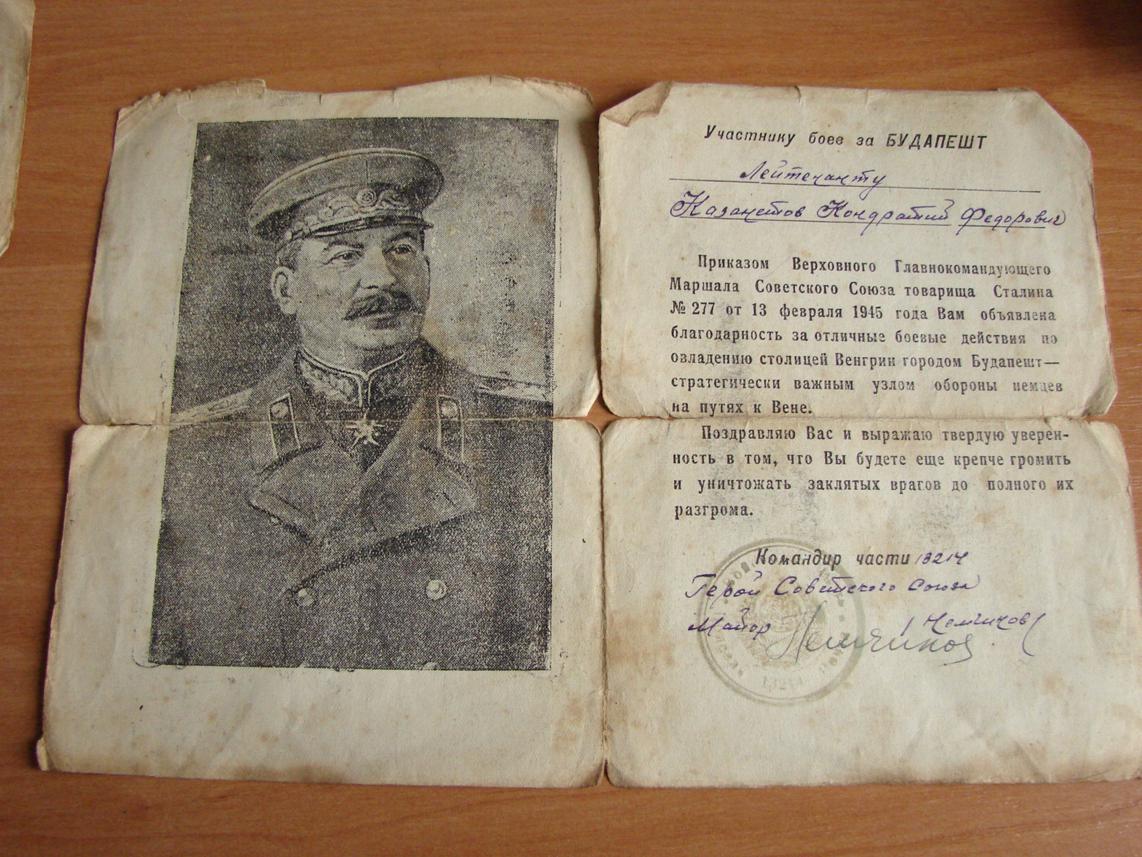 Участнику боев за БУДАПЕШТ
Лейтенанту
Казанстов Кондратий Федорович
Приказом Верховного Главнокомандующего
Маршала Советского Союза товарища Сталина
№ 277 от 13 февраля 1945 года Вам объявлена
благодарность за отличные боевые действия по
овладению столицей Венгрии городом Будапешт—
стратегически важным узлом обороны немцев
на путях к Вене.
Поздравляю Вас и выражаю твердую уверен-
ность в том, что Вы будете еще крепче громить
и уничтожать заклятых врагов до полного их
разгрома.
Командир части 13214
Герой Советского Союза
Майор Немчинов
13214